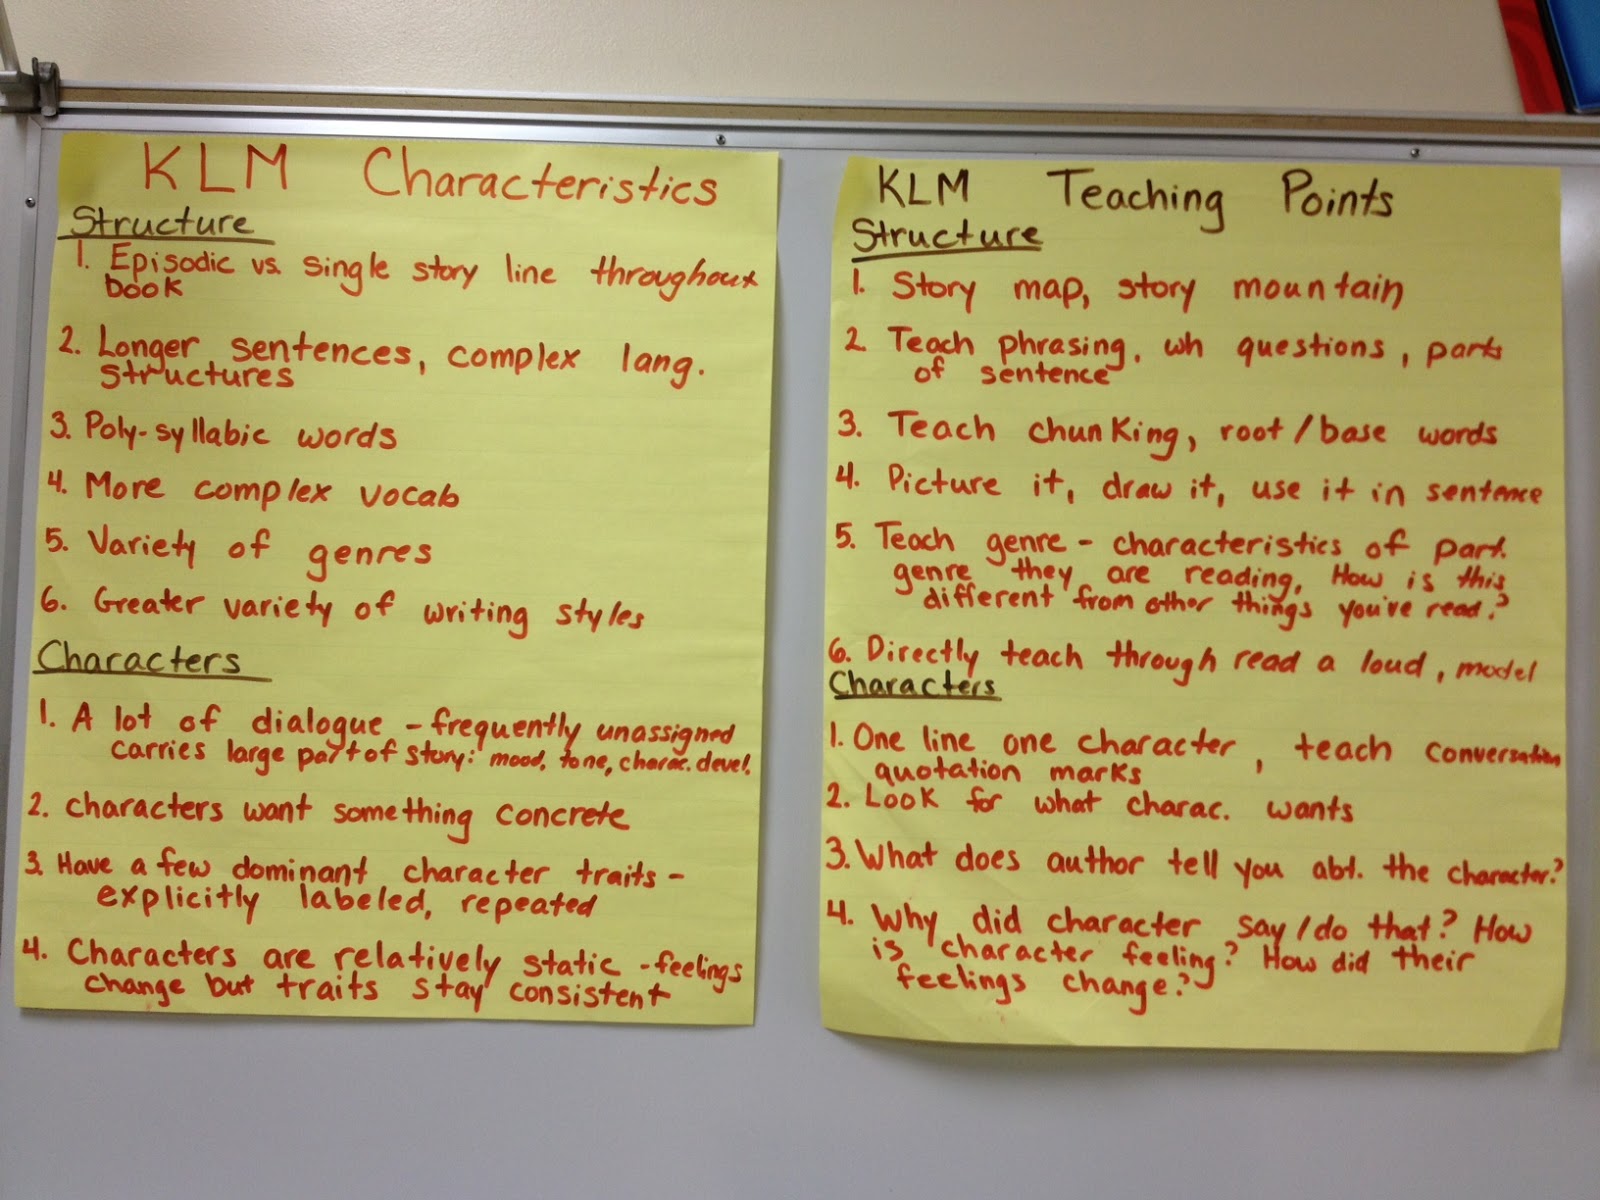 KLM Characteristics
Structure
1. Episodic vs. single story line throughout
book
2. Longer sentences, complex lang.
structures
3. Poly-syllabic words
4. More complex vocab
5. Variety of genres
6. Greater variety of writing styles
Characters
1. A lot of dialogue - frequently unassigned
carries large part of story: mood, tone, charac. devel.
2. Characters want something concrete
3. Have a few dominant character traits -
explicitly labeled, repeated
4. Characters are relatively static - feelings
change but traits stay consistent
KLM Teaching Points
Structure
1. Story map, story mountain
2. Teach phrasing, wh questions, parts
of sentence
3. Teach chunking, root/base words
4. Picture it, draw it, use it in sentence
5. Teach genre - characteristics of part.
genre they are reading, How is this
different from other things you've read?
6. Directly teach through read a loud, model
Characters
1. One line one character, teach conversation
quotation marks
2. Look for what charac. wants
3. What does author tell you abt. the character?
4. Why did character say/do that? How
is character feeling? How did their
feelings change?